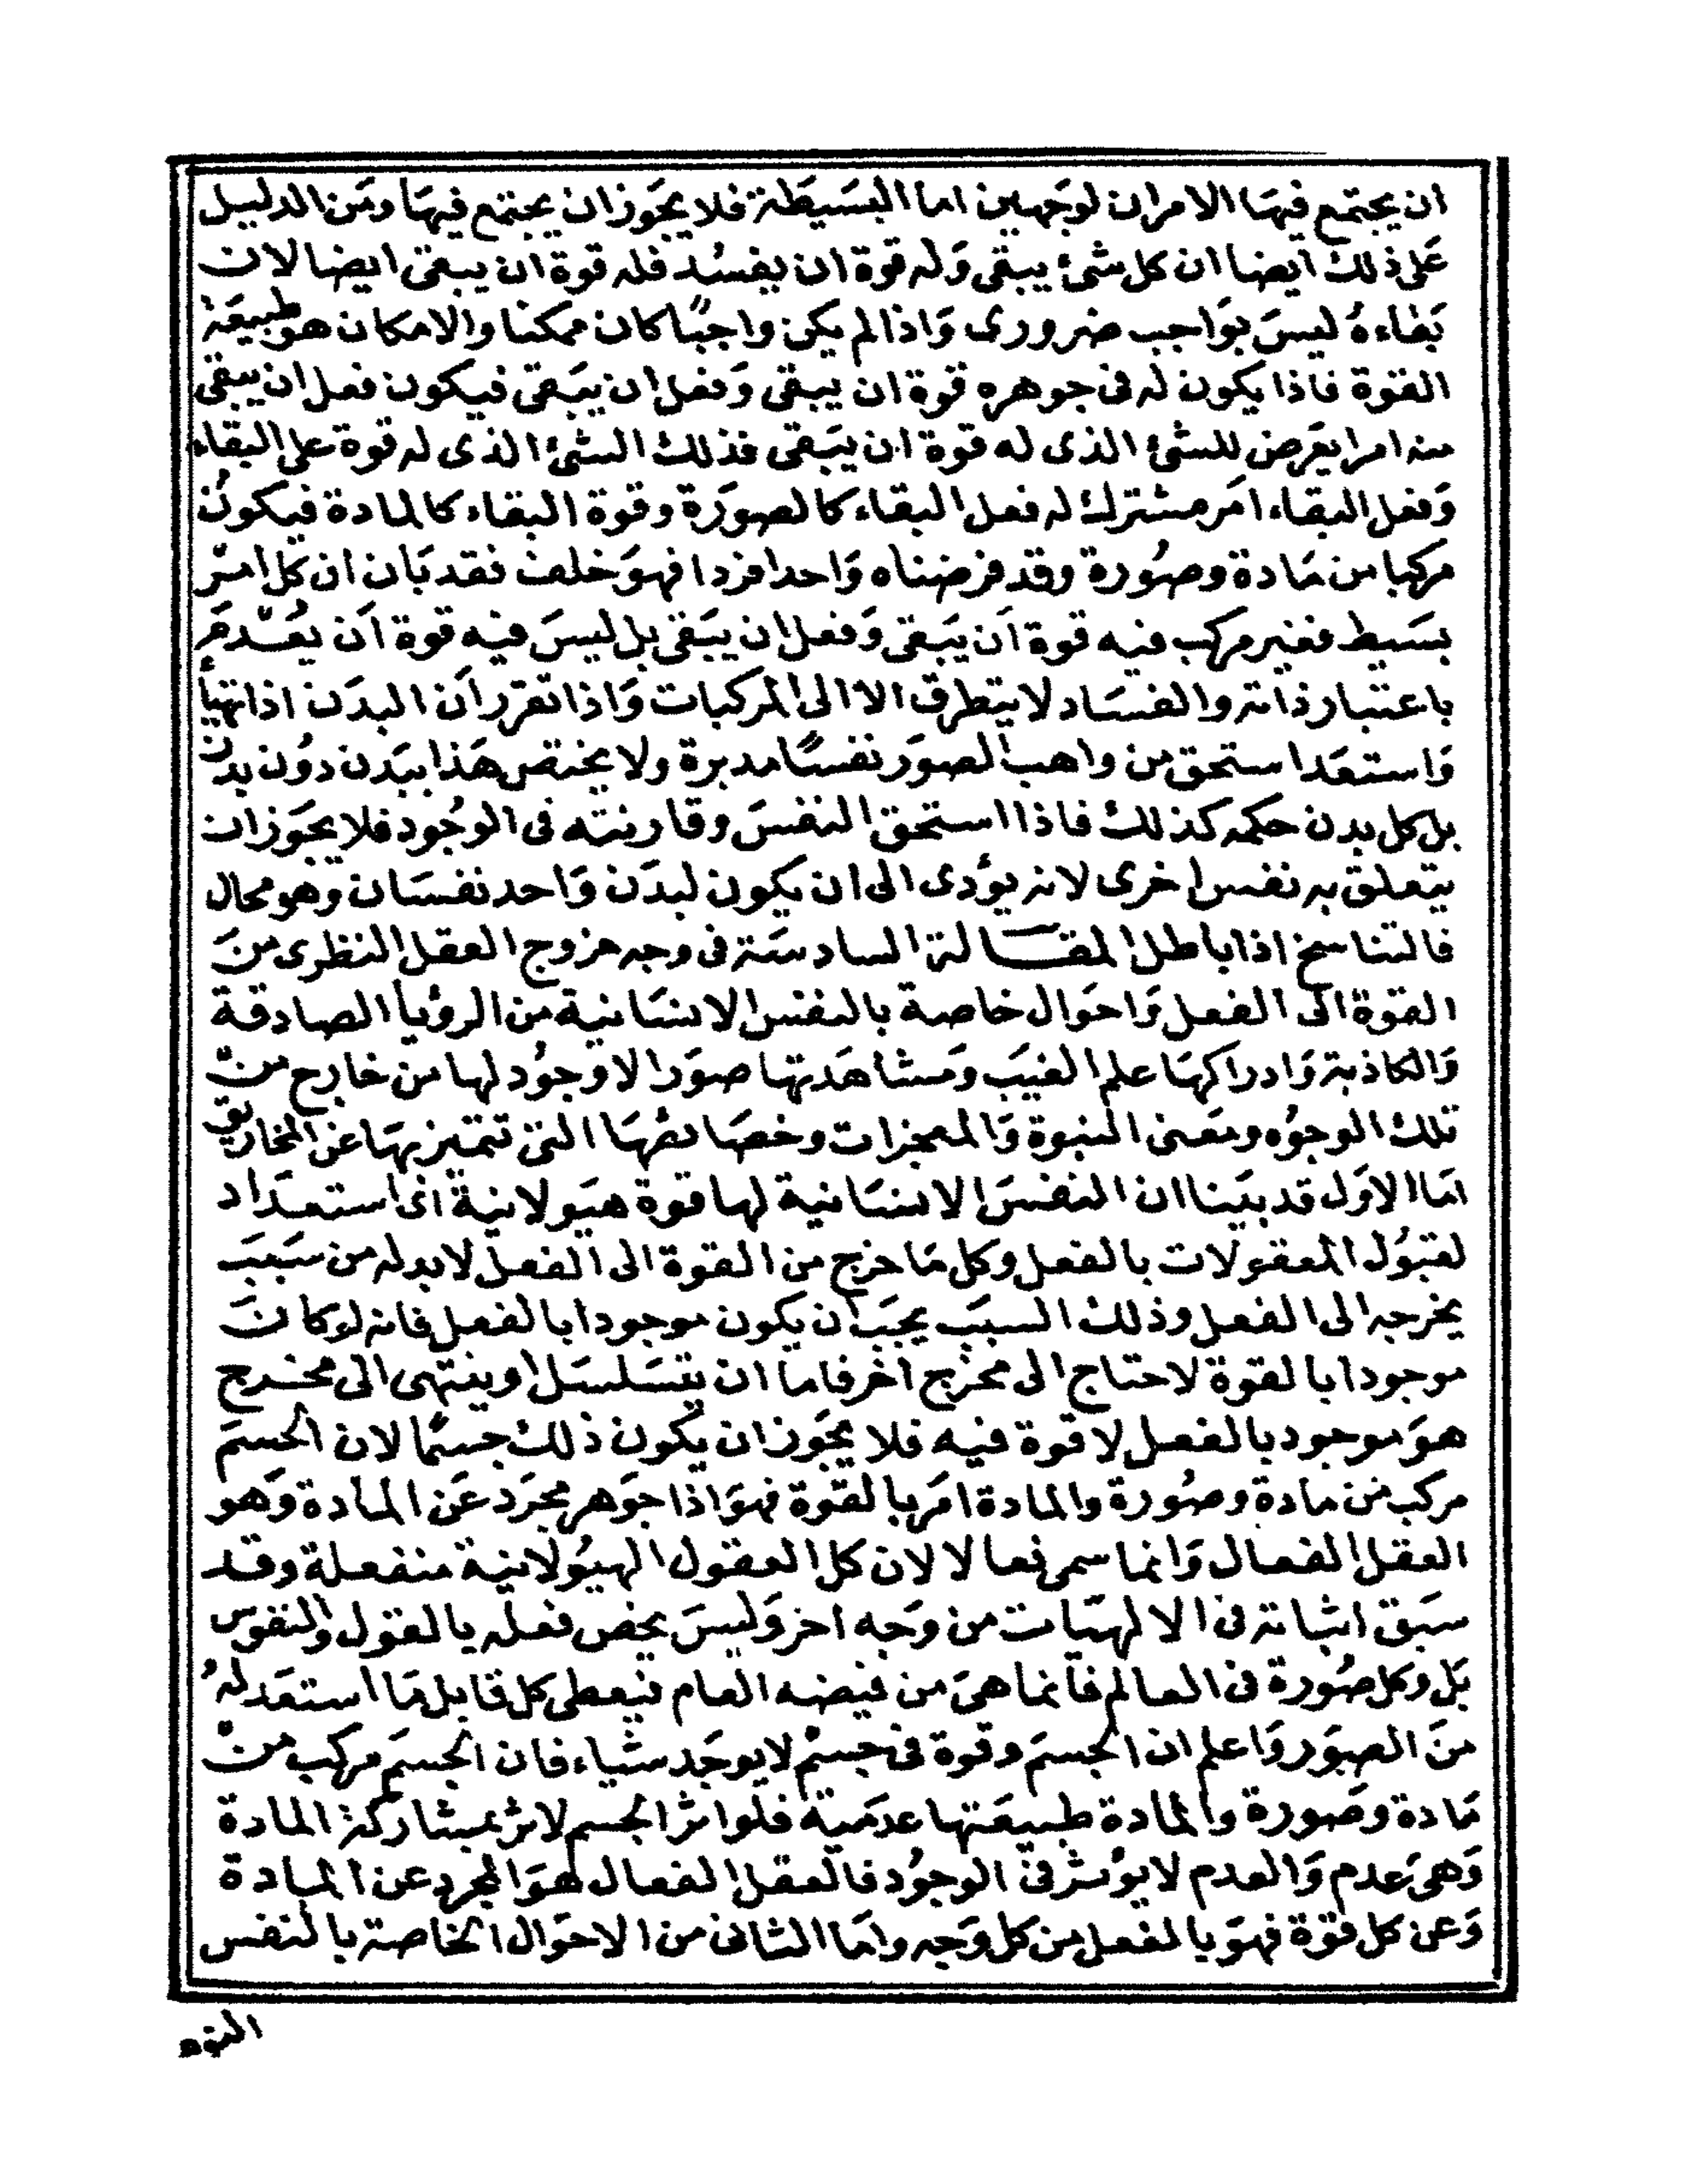 ان يجتمع فيها الامران لوجهين اما البسيطة فلا يجوز ان يجتمع فيها ومن الدليل
على ذلك ايضا ان كل شئ يبقى وله قوة ان يفسد فله قوة ان يبقى ايضا لان
بقاءه ليس بواجب ضرورى واذا لم يكن واجبًا كان ممكنا والامكان هو طبيعة
القوة فاذا يكون له فى جوهره قوة ان يبقى وفعل ان يبقى فيكون فعل ان يبقى
منه امرا يعرض للشئ الذى له قوة ان يبقى فذلك الشئ الذى له قوة على البقاء
وفعل البقاء امر مشترك له فعل البقاء كالصورة وقوة البقاء كالمادة فيكون
مركبا من مادة وصورة وقد فرضناه واحدا فردا فهو خلف فقد بان ان كل امر
بسيط فغير مركب فيه قوة ان يبقى وفعل ان يبقى بل ليس فيه قوة ان يعدم
باعتبار ذاته والفساد لا يتطرق الا الى المركبات واذا تقرر ان البدن اذا تهيأ
واستعد استحق من واهب الصور نفسًا مدبرة ولا يختص هذا ببدن دون بدن
بل كل بدن حكمه كذلك فاذا استحق النفس وقارنته فى الوجود فلا يجوز ان
يتعلق به نفس اخرى لانه يؤدى الى ان يكون لبدن واحد نفسان وهو محال
فالتناسخ اذا باطل المقالة السادسة فى وجه خروج العقل النظرى من
القوة الى الفعل واحوال خاصة بالنفس الانسانية من الرؤيا الصادقة
والكاذبة وادراكها علم الغيب ومشاهدتها صورا لا وجود لها من خارج من
تلك الوجوه ومعنى النبوة والمعجزات وخصائصها التى تتميز بها عن المخاريق
اما الاول قد بينا ان النفس الانسانية لها قوة هيولانية اى استعداد
لقبول المعقولات بالفعل وكل ما خرج من القوة الى الفعل لا بد له من سبب
يخرجه الى الفعل وذلك السبب يجب ان يكون موجودا بالفعل فانه لو كان
موجودا بالقوة لاحتاج الى مخرج اخر فاما ان يتسلسل او ينتهى الى مخرج
هو موجود بالفعل لا قوة فيه فلا يجوز ان يكون ذلك جسمًا لان الجسم
مركب من مادة وصورة والمادة امر بالقوة فهو اذا جوهر مجرد عن المادة وهو
العقل الفعال وانما سمى فعالا لان كل العقول الهيولانية منفعلة وقد
سبق اثباته فى الالهيات من وجه اخر وليس يخص فعله بالعقول والنفوس
بل وكل صورة فى العالم فانما هى من فيضه العام فيعطى كل قابل ما استعد له
من الصور واعلم ان الجسم وقوة فى جسم لا يوجد شياء فان الجسم مركب من
مادة وصورة والمادة طبيعتها عدمية فلو اثر الجسم لاثر بمشاركة المادة
وهى عدم والعدم لا يؤثر فى الوجود فالعقل الفعال هو المجرد عن المادة
وعن كل قوة فهو بالفعل من كل وجه واما الثانى من الاحوال الخاصة بالنفس